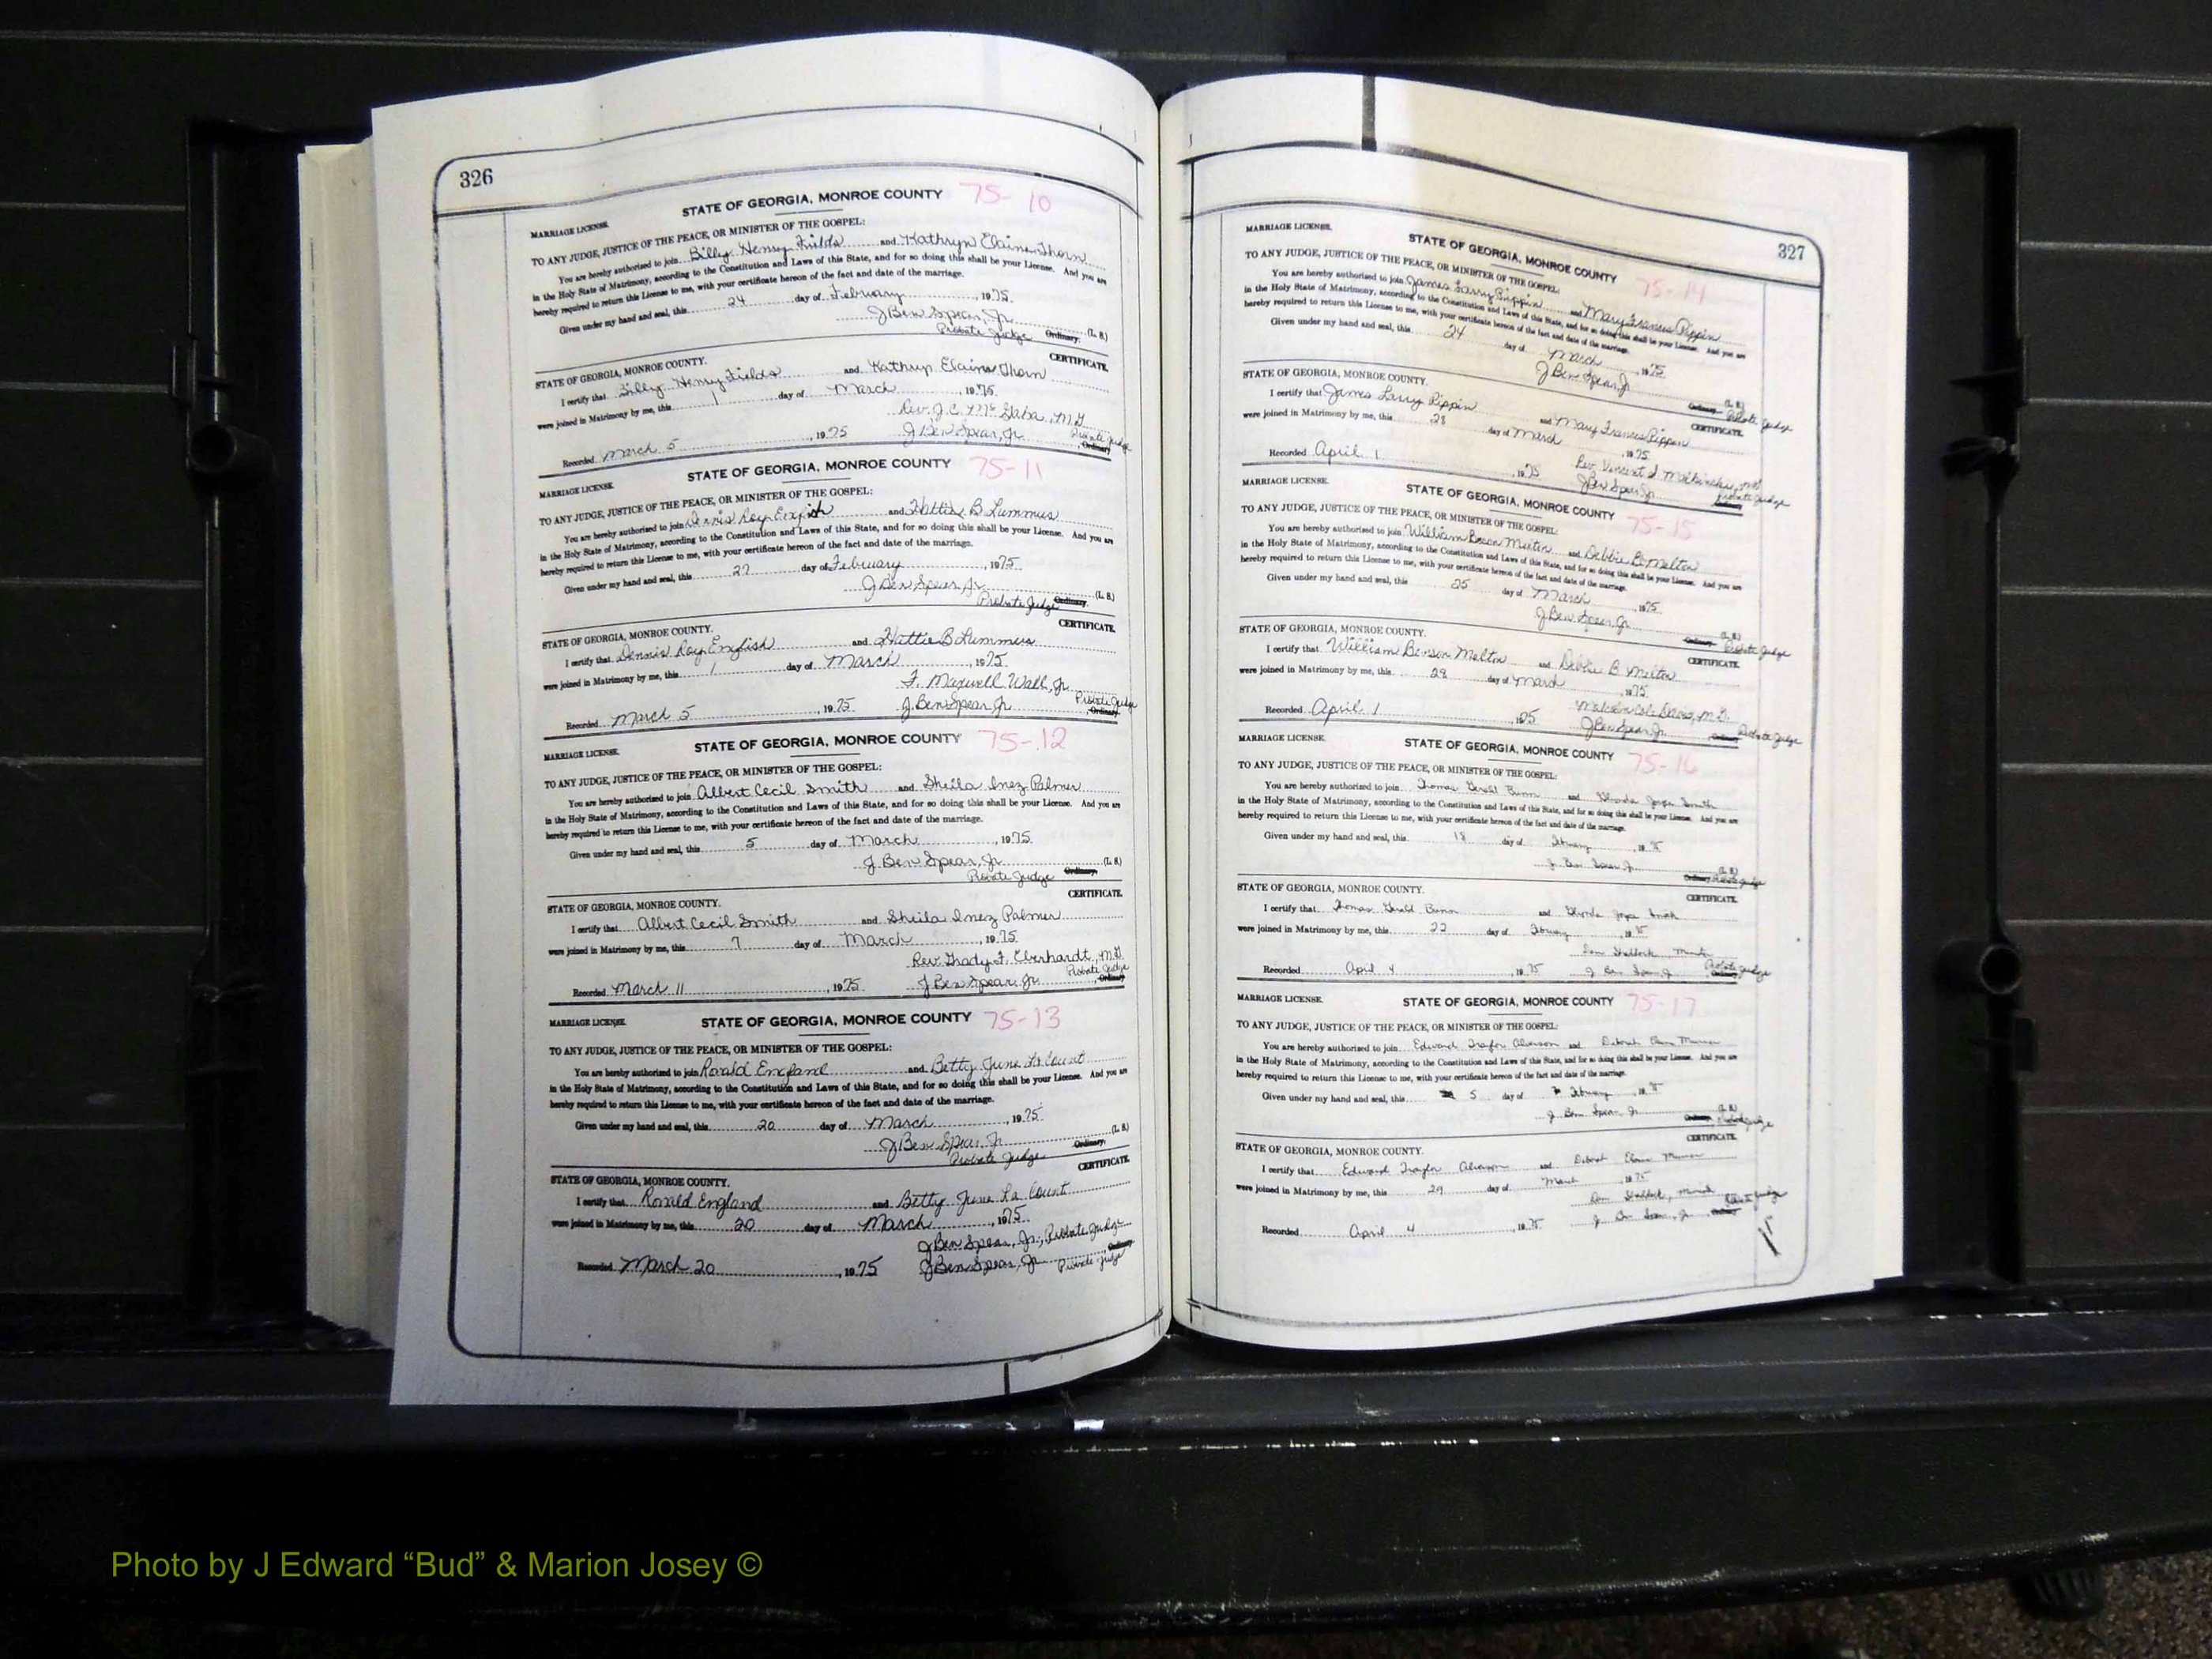 326
STATE OF GEORGIA, MONROE COUNTY 75-10
MARRIAGE LICENSE.
TO ANY JUDGE, JUSTICE OF THE PEACE, OR MINISTER OF THE GOSPEL:
You are hereby authorized to join Billy Henry Fields and Kathryn Elaine Thorn
in the Holy State of Matrimony, according to the Constitution and Laws of this State, and for so doing this shall be your License. And you are
hereby required to return this License to me, with your certificate hereon of the fact and date of the marriage.
Given under my hand and seal, this 24 day of February, 1975
J Ben Spear, Jr. (L. S.)
Probate Judge Ordinary.
CERTIFICATE.
STATE OF GEORGIA, MONROE COUNTY.
I certify that Billy Henry Fields and Kathryn Elaine Thorn
were joined in Matrimony by me, this 1 day of March, 1975
Rev. J.C. , M.G.
Recorded March 5, 1975 J Ben Spear, Jr. Probate Judge, Ordinary
STATE OF GEORGIA, MONROE COUNTY 75-11
MARRIAGE LICENSE.
TO ANY JUDGE, JUSTICE OF THE PEACE, OR MINISTER OF THE GOSPEL:
You are hereby authorized to join Dennis Roy English and Hattie B Lummus
in the Holy State of Matrimony, according to the Constitution and Laws of this State, and for so doing this shall be your License. And you are
hereby required to return this License to me, with your certificate hereon of the fact and date of the marriage.
Given under my hand and seal, this 27 day of February, 1975
J Ben Spear, Jr. (L. S.)
Probate Judge Ordinary.
CERTIFICATE.
STATE OF GEORGIA, MONROE COUNTY.
I certify that Dennis Roy English and Hattie B Lummus
were joined in Matrimony by me, this 1 day of March, 1975
F. Maxwell Wall, Jr.
Recorded March 5, 1975 J. Ben Spear Jr Probate Judge, Ordinary
STATE OF GEORGIA, MONROE COUNTY 75-12
MARRIAGE LICENSE.
TO ANY JUDGE, JUSTICE OF THE PEACE, OR MINISTER OF THE GOSPEL:
You are hereby authorized to join Albert Cecil Smith and Sheila Inez Palmer
in the Holy State of Matrimony, according to the Constitution and Laws of this State, and for so doing this shall be your License. And you are
hereby required to return this License to me, with your certificate hereon of the fact and date of the marriage.
Given under my hand and seal, this 5 day of March, 1975
J Ben Spear, Jr (L. S.)
Probate Judge Ordinary.
CERTIFICATE.
STATE OF GEORGIA, MONROE COUNTY.
I certify that Albert Cecil Smith and Sheila Inez Palmer
were joined in Matrimony by me, this 7 day of March, 1975
Rev. Grady F. Eberhardt, M.G.
Recorded March 11, 1975 J Ben Spear, Jr. Probate Judge, Ordinary
STATE OF GEORGIA, MONROE COUNTY 75-13
MARRIAGE LICENSE.
TO ANY JUDGE, JUSTICE OF THE PEACE, OR MINISTER OF THE GOSPEL:
You are hereby authorized to join Ronald England and Betty June La Count
in the Holy State of Matrimony, according to the Constitution and Laws of this State, and for so doing this shall be your License. And you are
hereby required to return this License to me, with your certificate hereon of the fact and date of the marriage.
Given under my hand and seal, this 20 day of March, 1975
J Ben Spear, Jr. (L. S.)
Probate Judge Ordinary.
CERTIFICATE.
STATE OF GEORGIA, MONROE COUNTY.
I certify that Ronald England and Betty June La Count
were joined in Matrimony by me, this 20 day of March, 1975
J Ben Spear, Jr., Probate Judge
Recorded March 20, 1975 J Ben Spear, Jr Probate Judge, Ordinary
327
STATE OF GEORGIA, MONROE COUNTY 75-14
MARRIAGE LICENSE.
TO ANY JUDGE, JUSTICE OF THE PEACE, OR MINISTER OF THE GOSPEL:
You are hereby authorized to join James Larry Pippin and Mary Frances Pippin
in the Holy State of Matrimony, according to the Constitution and Laws of this State, and for so doing this shall be your License. And you are
hereby required to return this License to me, with your certificate hereon of the fact and date of the marriage.
Given under my hand and seal, this 24 day of March, 1975
J Ben Spear Jr (L. S.)
Ordinary Probate Judge
CERTIFICATE.
STATE OF GEORGIA, MONROE COUNTY.
I certify that James Larry Pippin and Mary Frances Pippin
were joined in Matrimony by me, this 28 day of March, 1975
Rev. Vincent
Recorded April 1, 1975 J Ben Spear Jr Probate Judge Ordinary
STATE OF GEORGIA, MONROE COUNTY 75-15
MARRIAGE LICENSE.
TO ANY JUDGE, JUSTICE OF THE PEACE, OR MINISTER OF THE GOSPEL:
You are hereby authorized to join William Benson Melton and Debbie B Melton
in the Holy State of Matrimony, according to the Constitution and Laws of this State, and for so doing this shall be your License. And you are
hereby required to return this License to me, with your certificate hereon of the fact and date of the marriage.
Given under my hand and seal, this 25 day of March, 1975
J Ben Spear, Jr (L. S.)
Ordinary Probate Judge
CERTIFICATE.
STATE OF GEORGIA, MONROE COUNTY.
I certify that William Benson Melton and Debbie B Melton
were joined in Matrimony by me, this 29 day of March, 1975
Malcolm Cole , M.G.
Recorded April 1, 1975 J Ben Spear Jr. Ordinary Probate Judge
STATE OF GEORGIA, MONROE COUNTY 75-16
MARRIAGE LICENSE.
TO ANY JUDGE, JUSTICE OF THE PEACE, OR MINISTER OF THE GOSPEL:
You are hereby authorized to join Thomas Gerald Bunn and Joyce Smith
in the Holy State of Matrimony, according to the Constitution and Laws of this State, and for so doing this shall be your License. And you are
hereby required to return this License to me, with your certificate hereon of the fact and date of the marriage.
Given under my hand and seal, this 18 day of February, 1975
J Ben Spear Jr. (L. S.)
Ordinary Probate Judge
CERTIFICATE.
STATE OF GEORGIA, MONROE COUNTY.
I certify that Thomas Gerald Bunn and Joyce Smith
were joined in Matrimony by me, this 22 day of February, 1975
Recorded April 4, 1975 J Ben Spear Jr Probate Judge Ordinary
STATE OF GEORGIA, MONROE COUNTY 75-17
MARRIAGE LICENSE.
TO ANY JUDGE, JUSTICE OF THE PEACE, OR MINISTER OF THE GOSPEL:
You are hereby authorized to join Edward and Deborah
in the Holy State of Matrimony, according to the Constitution and Laws of this State, and for so doing this shall be your License. And you are
hereby required to return this License to me, with your certificate hereon of the fact and date of the marriage.
Given under my hand and seal, this 5 day of February, 1975
J Ben Spear Jr (L. S.)
Ordinary Probate Judge
CERTIFICATE.
STATE OF GEORGIA, MONROE COUNTY.
I certify that Edward and
were joined in Matrimony by me, this 29 day of March, 1975
Recorded April 4, 1975 J Ben Spear, Jr Ordinary Probate Judge
Photo by J Edward “Bud” & Marion Josey ©